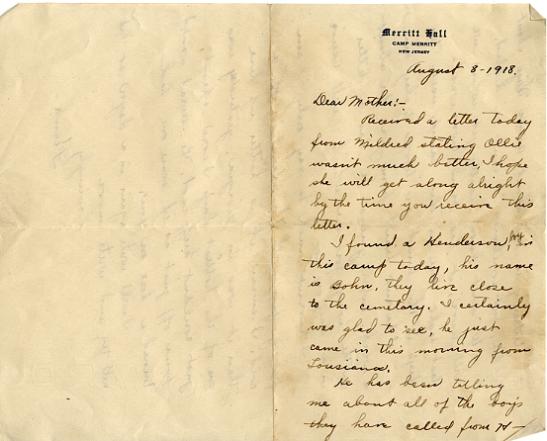 Merritt Hall
CAMP MERRITT
NEW JERSEY
August 8-1918.
Dear Mother:-
Received a letter today
from Mildred stating Ollie
wasn't much better, I hope
she will get along alright
by the time you receive this
letter.
I found a Henderson, boy in
this camp today, his name
is Bohn, they live close
to the cemetary. I certainly
was glad to see, he just
came in this morning from
Lousiana.
He has been telling
me about all of the boys
they have called from H-